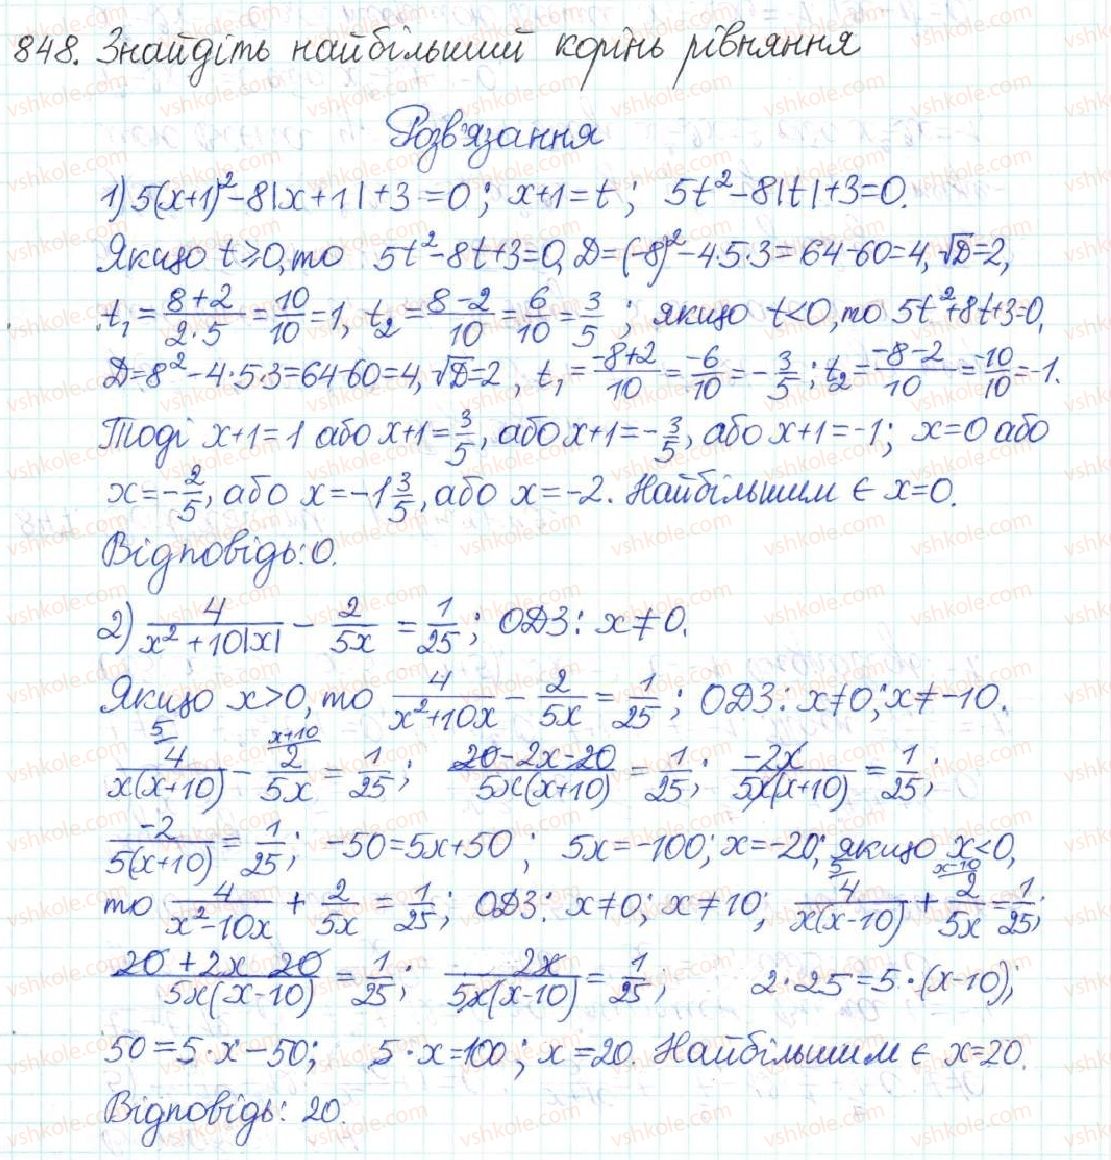 848. Знайдіть найбільший корінь рівняння
Розв'язання
1) 5(x+1)²-8|x+1|+3=0; x+1=t; 5t²-8|t|+3=0.
Якщо t≥0, то 5t²-8t+3=0, D=(-8)²-4·5·3=64-60=4, √D=2,
t₁=(8+2)/(2·5)=10/10=1, t₂=(8-2)/10=6/10=3/5; якщо t<0, то 5t²+8t+3=0,
D=8²-4·5·3=64-60=4, √D=2, t₁=(-8+2)/10=-6/10=-3/5; t₂=(-8-2)/10=-10/10=-1.
Тоді x+1=1 або x+1=3/5, або x+1=-3/5, або x+1=-1; x=0 або
x=-2/5, або x=-1 3/5, або x=-2. Найбільшим є x=0.
Відповідь: 0.
2) 4/(x²+10|x|) - 2/(5x) = 1/25; ОДЗ: x≠0.
Якщо x>0, то 4/(x²+10x) - 2/(5x) = 1/25; ОДЗ: x≠0; x≠-10.
5/ 4/(x(x+10)) - x+10/ 2/(5x) = 1/25; (20-2x-20)/(5x(x+10)) = 1/25; -2x/(5x(x+10)) = 1/25;
-2/(5(x+10)) = 1/25; -50=5x+50; 5x=-100; x=-20; якщо x<0,
то 4/(x²-10x) + 2/(5x) = 1/25; ОДЗ: x≠0; x≠10; 5/ 4/(x(x-10)) + x-10/ 2/(5x) = 1/25;
(20+2x-20)/(5x(x-10)) = 1/25; 2x/(5x(x-10)) = 1/25; 2·25=5·(x-10);
50=5·x-50; 5·x=100; x=20. Найбільшим є x=20.
Відповідь: 20.